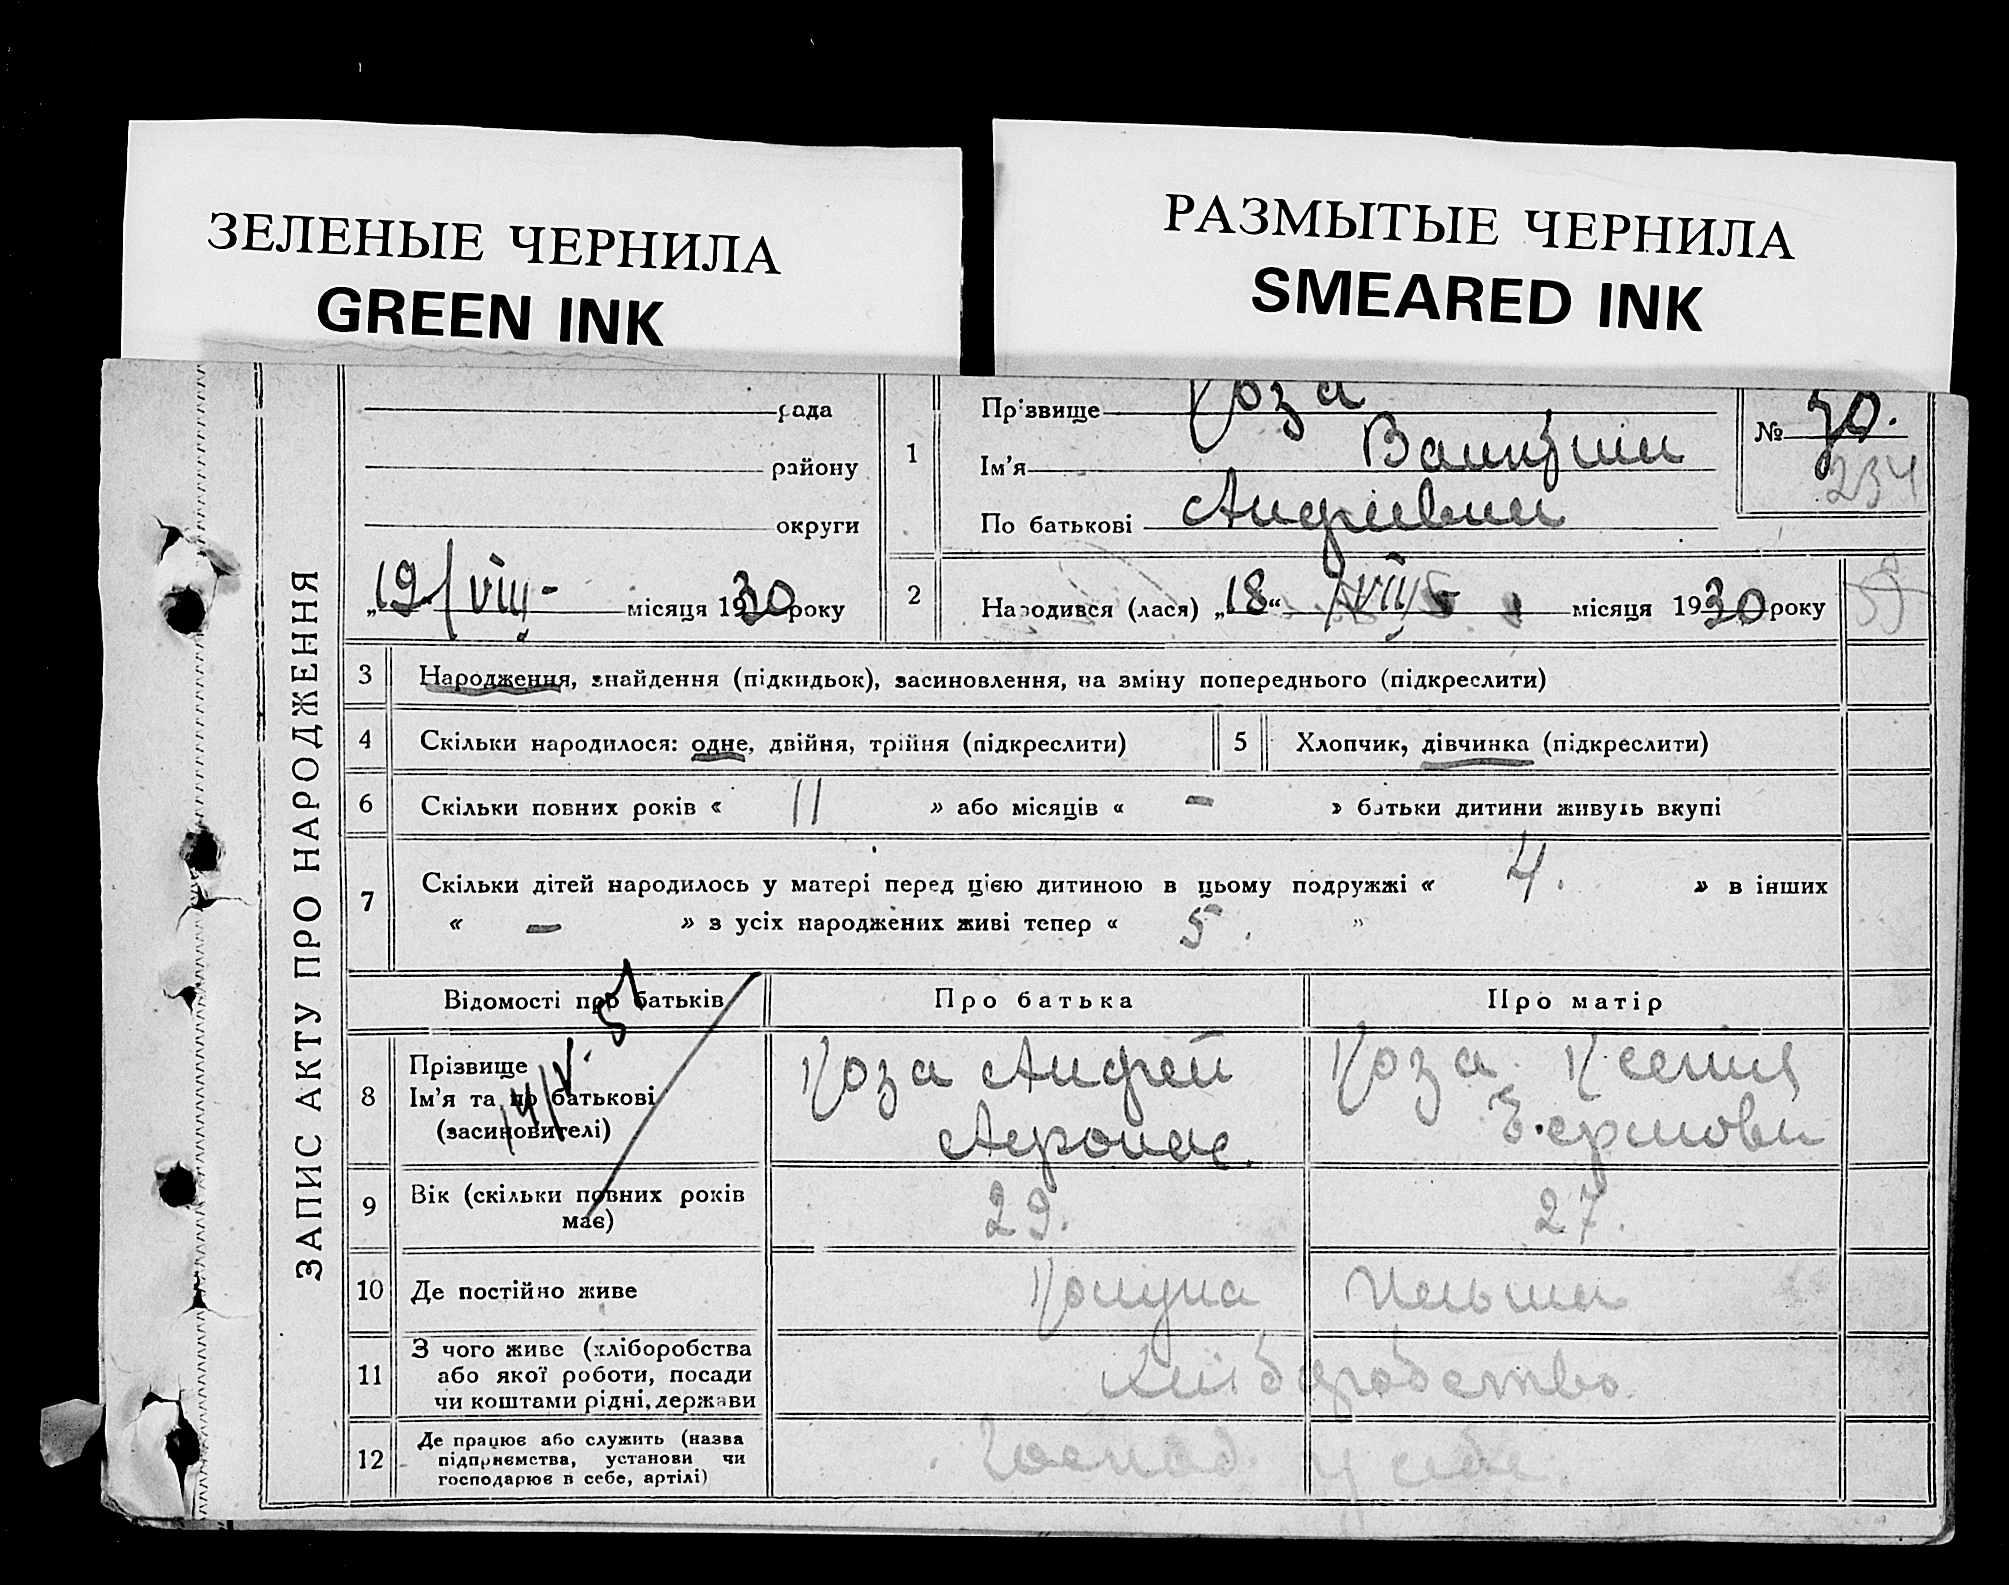 ЗЕЛЕНЫЕ ЧЕРНИЛА
GREEN INK
РАЗМЫТЫЕ ЧЕРНИЛА
SMEARED INK
ЗАПИС АКТУ ПРО НАРОДЖЕННЯ
рада
району
округи
„19/VIII- місяця 1930 року
1
Прізвище Коза
Ім'я
По батькові
№ 30.
234
2 Народився (лася) „18“ /VIII місяця 1930 року
3 Народження, знайдення (підкидьок), засиновлення, на зміну попереднього (підкреслити)
4 Скільки народилося: одне, двійня, трійня (підкреслити)
5 Хлопчик, дівчинка (підкреслити)
6 Скільки повних років « 11 » або місяців « - » батьки дитини живуть вкупі
7 Скільки дітей народилось у матері перед цією дитиною в цьому подружжі « 4. » в інших
« - » з усіх народжених живі тепер « 5. »
Відомості про батьків
Про батька
Про матір
8 Прізвище
Ім'я та по батькові
(засиновителі)
Коза Андрей
Коза Ксения
9 Вік (скільки повних років
має)
29.
27.
10 Де постійно живе
11 З чого живе (хліборобства
або якої роботи, посади
чи коштами рідні, держави
Хліборобство
12 Де працює або служить (назва
підприємства, установи чи
господарює в себе, артілі)
Господ. у себе